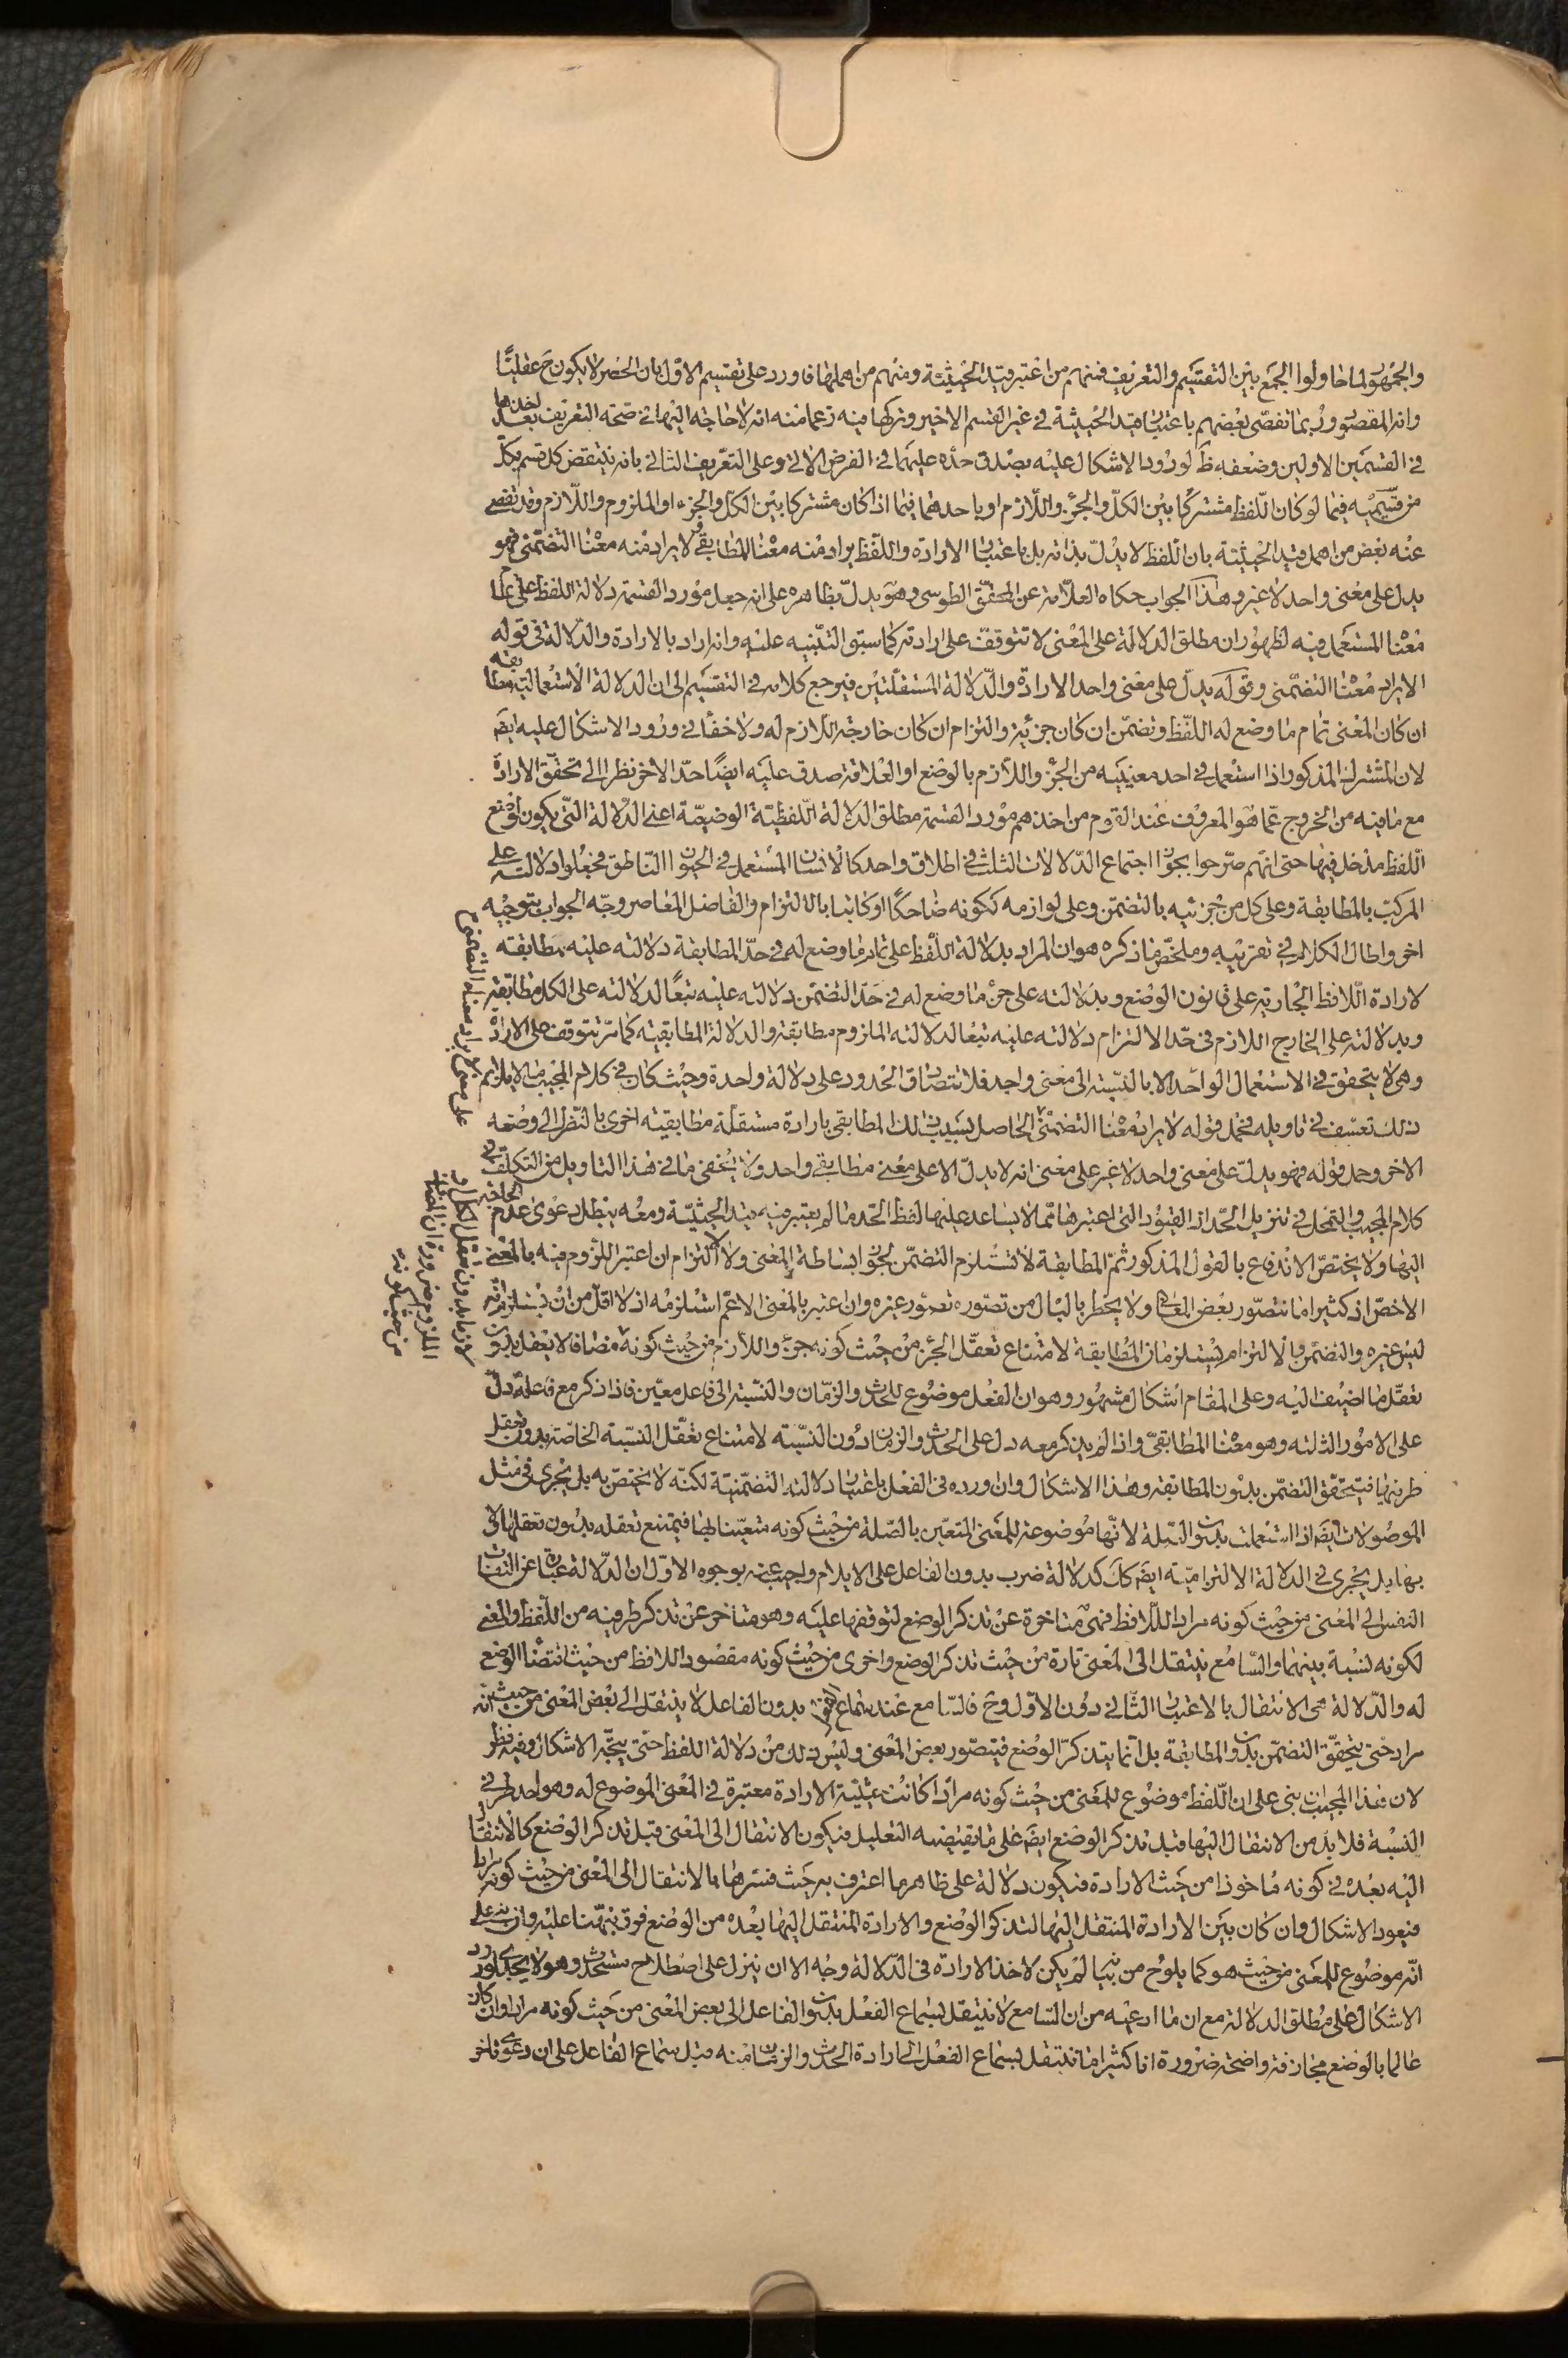 والجمهور لما حاولوا الجمع بين التقسيم والتعريف فمنهم من اعتبر قيد الحيثية ومنهم من اهملها فاورد على تقسيم الاول بان الحصر لا يكون ح عقليا
وانه المقصود وربما تفصّى بعضهم باعتبار قيد الحيثية في غير القسم الاخير وتركها فيه زعما منه انه لا حاجة اليها في صحة التعريف بعد اخذها
في القسمين الاولين وضعفه ظ لورود الاشكال عليه بصدق حده عليهما في الفرض الاتي وعلى التعريف الثاني بانه ينتقض كل قسم بكل
من قسيميه فيما لو كان اللفظ مشتركا بين الكل والجزء واللازم او باحدهما فيما اذا كان مشتركا بين الكل والجزء او الملزوم واللازم وقد تفصى
عنه بعض من اهمل قيد الحيثية بان اللفظ لا يدل بذاته بل باعتبار الارادة واللفظ يراد منه معناه المطابقي لا يراد منه معناه التضمني فهو
يدل على معنى واحد لا غير وهذا الجواب حكاه العلامة عن المحقق الطوسي وهو يدل بظاهره على انه جعل مورد القسمة دلالة اللفظ على
معناه المستعمل فيه لظهور ان مطلق الدلالة على المعنى لا تتوقف على ارادته كما سبق التنبيه عليه وانه اراد بالارادة والدلالة في قوله
لا يراد معناه التضمني وقوله يدل على معنى واحد الارادة والدلالة المستقلتين فيرجع كلامه في التقسيم الى ان الدلالة الاستعمالية مطابقة
ان كان المعنى تمام ما وضع له اللفظ وتضمن ان كان جزئه والتزام ان كان خارجه اللازم له ولا خفأ في ورود الاشكال عليه ايضَ
لان المشترك المذكور اذا استعمل في احد معنييه من الجزء واللازم بالوضع او العلاقة صدق عليه ايضًا حدّ الاخر نظرا الى تحقق الارادة
مع ما فيه من الخروج عما هو المعروف عند القوم من اخذهم مورد القسمة مطلق الدلالة اللفظية الوضعية اعني الدلالة التي يكون لوضع
اللفظ مدخل فيها حتى انهم صرحوا بجواز اجتماع الدلالات الثلث في اطلاق واحد كالانسان المستعمل في الحيوان الناطق فجعلوا دلالته على
المركب بالمطابقة وعلى كل من جزئيه بالتضمن وعلى لوازمه ككونه ضاحكا او كاتبا بالالتزام والفاضل المعاصر وجّه الجواب بتوجيه
اخر واطال الكلام في تقريبه وملخص ما ذكره هو ان المراد بدلالة اللفظ على تمام ما وضع له في حد المطابقة دلالته عليه مطابقته
لارادة اللافظ الجارية على قانون الوضع وبدلالته على جزء ما وضع له في حد التضمن دلالته عليه تبعًا لدلالته على الكل مطابقة
وبدلالته على الخارج اللازم في حد الالتزام دلالته عليه تبعا لدلالته الملزوم مطابقة والدلالة المطابقية كما مرّ تتوقف على الارادة
وهي لا يتحقق في الاستعمال الواحد الا بالنسبة الى معنى واحد فلا تتصادق الحدود على دلالة واحدة وحيث كان في كلام المجيب ما لا يلائم
ذلك تعسّف في تاويله فحمل قوله لا يراد معناه التضمني الحاصل بسبب ذلك المطابقي بارادة مستقلة مطابقية اخرى بالنظر الى وضعه
الاخر وحمل قوله فهو يدل على معنى واحد لا غير على معنى انه لا يدل الا على معنى مطابقي واحد ولا يخفى ما في هذا التاويل من التكلف في
كلام المجيب والتمحل في تنزيل الحد اذ القيود التي اعتبرها مما لا يساعد عليها لفظ الحد ما لم يعتبر فيه قيد الحيثية ومعه يبطل دعوى عدم الحاجة
اليها ولا يختص الاندفاع بالقول المذكور ثمّ المطابقة لا تستلزم التضمن لجواز بساطة المعنى ولا الالتزام ان اعتبر اللزوم فيه بالمعنى
الاخص اذ كثيرا ما نتصور بعض المعاني ولا يخطر بالبال من تصوره تصور غيره وان اعتبر بالمعنى الاعم استلزمه اذ لا اقل من ان يستلزم انه
ليس غيره والتضمن والالتزام يستلزمان المطابقة لامتناع تعقل الجزء من حيث كونه جزء واللازم من حيث كونه مضافا لا يعقل بدون
تعقل ما اضيف اليه وعلى المقام اشكال مشهور وهو ان الفعل موضوع للحدث والزمان والنسبة الى فاعل معين فاذا ذكر مع فاعله دل
على الامور الثلثة وهو معناه المطابقي واذا لم يذكر معه دل على الحدث والزمان دون النسبة لامتناع تعقل النسبة الخاصة بدون تعقل
طرفيها فيتحقق التضمن بدون المطابقة وهذا الاشكال وان اورده في الفعل باعتبار دلالته التضمنية لكنه لا يختص به بل يجري في مثل
الموصولات ايضَ اذا استعملت بدون الصلة لانها موضوعة للمعنى المتعين بالصلة من حيث كونه متعينا بها فيمتنع تعقله بدون تعقلها
بها بل يجري في الدلالة الالتزامية ايضَ كدلالة ضرب بدون الفاعل على الايلام واجيب عنه بوجوه الاول ان الدلالة عبارة عن التفات
النفس الى المعنى من حيث كونه مراد اللافظ فهي متاخرة عن تذكر الوضع لتوقفها عليه وهو متاخر عن تذكر طرفيه من اللفظ والمعنى
لكونه نسبة بينهما والسامع ينتقل الى المعنى تارة من حيث تذكر الوضع واخرى من حيث كونه مقصود اللافظ من حيث اقتضاء الوضع
له والدلالة هي الانتقال بالاعتبار الثاني دون الاول وح فالسامع عند سماع الفعل بدون الفاعل لا ينتقل الى بعض المعنى من حيث انه
مراد حتى يتحقق التضمن بدون المطابقة بل انما يتذكر الوضع فيتصور بعض المعنى وليس ذلك من دلالة اللفظ حتى يتجه الاشكال وفيه نظر
لان هذا المجيب ان بنى على ان اللفظ موضوع للمعنى من حيث كونه مرادا كانت حيثية الارادة معتبرة في المعنى الموضوع له وهو احد طرفي
النسبة فلا بد من الانتقال اليها قبل تذكر الوضع ايضَ على ما يقتضيه التعليل فيكون الانتقال الى المعنى قبل تذكر الوضع كالانتقال
اليه بعده في كونه ماخوذا من حيث الارادة فيكون دلالة على ظاهر ما اعترف به حيث فسرها بالانتقال الى المعنى من حيث كونه مرادا
فيعود الاشكال وان كان بين الارادة المنتقل اليها لتذكر الوضع والارادة المنتقل اليها بعده من الوضع فرق نبهنا عليه وان بنى على
انه موضوع للمعنى من حيث هو كما يلوح من بيانه لم يكن لاخذ الارادة في الدلالة وجه الا ان ينزل على اصطلاح مستحدث وهو لا يجدي لورود
الاشكال على مطلق الدلالة مع ان ما ادعيه من ان السامع لا ينتقل بسماع الفعل بدون الفاعل الى بعض المعنى من حيث كونه مرادا وان كان
عالما بالوضع مجازفة واضحة ضرورة انا كثيرا ما ننتقل بسماع الفعل الى ارادة الحدث والزمان منه قبل سماع الفاعل على ان دعوى تاخر